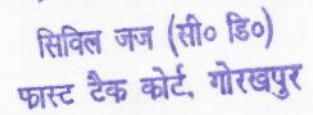 सिविल जज (सी० डि०)
फास्ट टैक कोर्ट, गोरखपुर